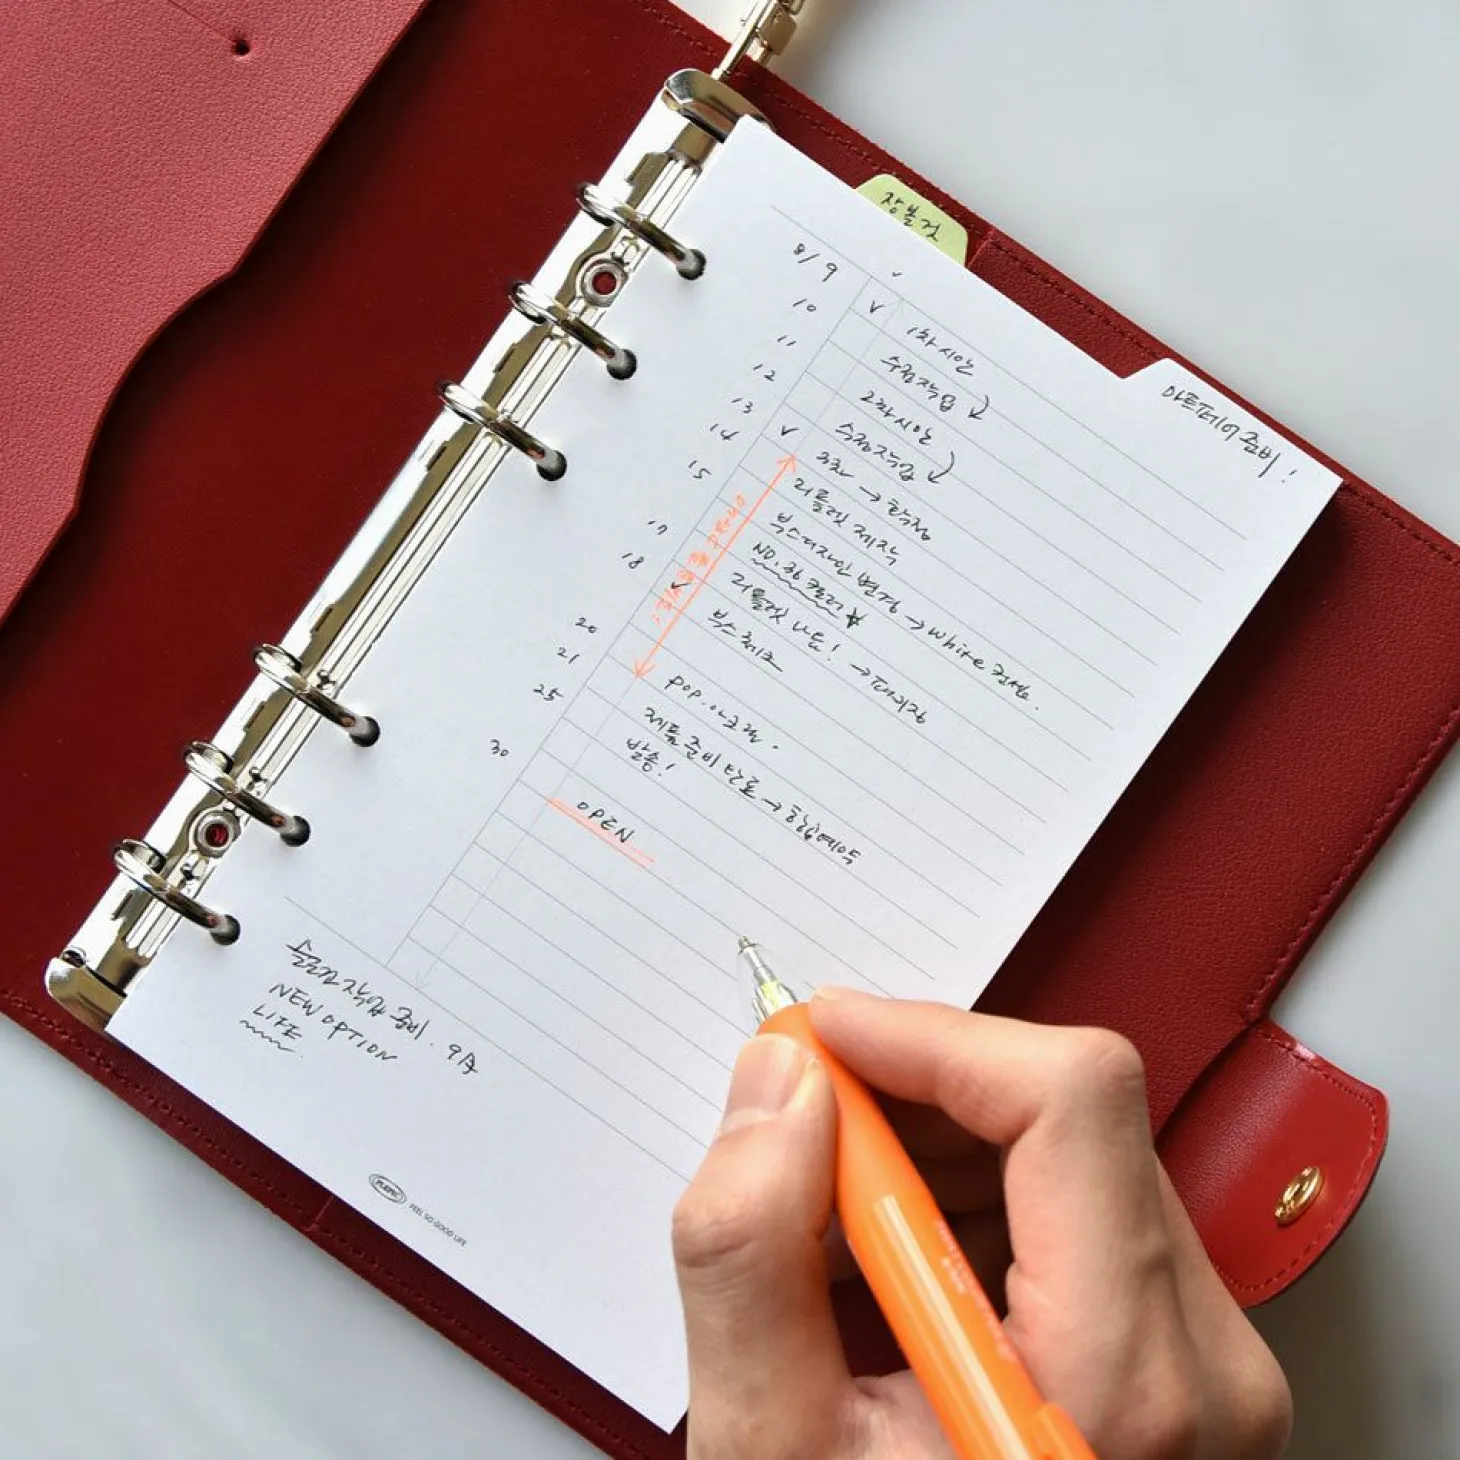 장볼것
아트페어준비!
8/9 ✓ 1차시안
10 수정작업
11 2차시안
12 수정작업
13 ✓ → 확정
14 리플렛 제작
15 부스디자인 변경 → White 컨셉.
NO. 36 컬러 ☆
17 리플렛 나옴! →
18 ✓ 부스체크
20 POP.
21 제품 준비 완료 →
25 발송!
30 OPEN
작업 준비. 9月
NEW OPTION
LIFE
PLEPIC
FEEL SO GOOD LIFE